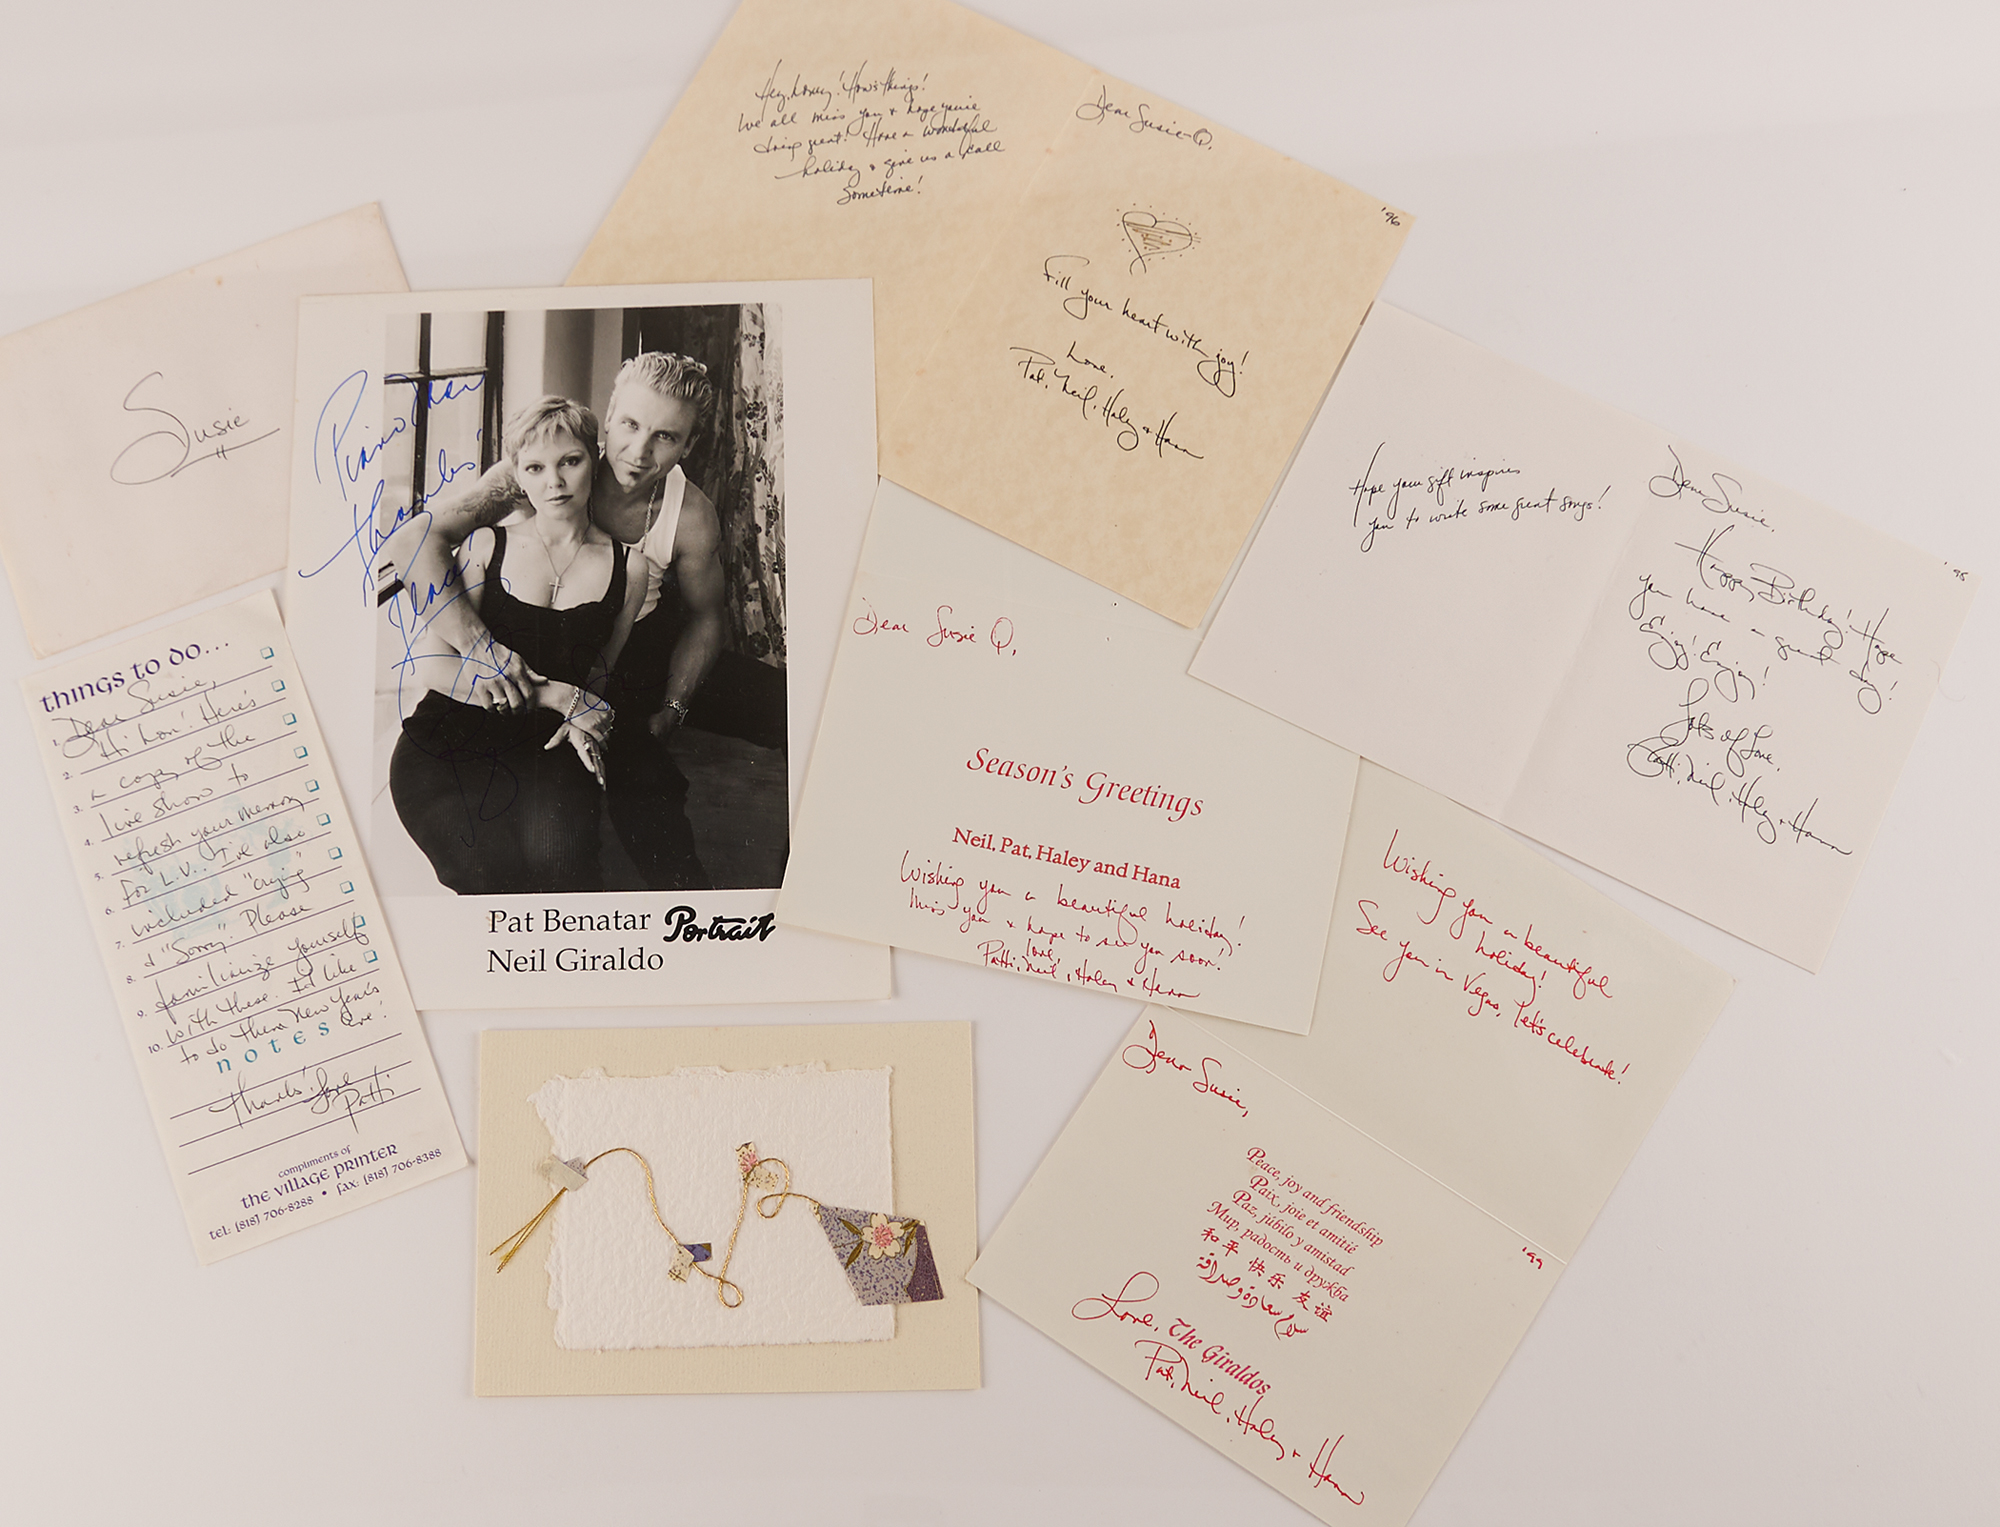 Hey, honey! How's things!
We all miss you & hope you're
doing great! Have a wonderful
holiday & give us a call
sometime!
Dear Susie-Q,
'96
Fill your heart with joy!
Love,
Pat, Neil, Haley & Hana
Susie
Piano Man
Thanks!
Peace!
Pat Benatar Portrait
Neil Giraldo
Hope your gift inspires
you to write some great songs!
'95
Dear Susie,
Happy Birthday! Hope
you have a great day!
Enjoy! Enjoy!
Lots of Love,
Patti, Neil, Haley & Hana
things to do...
1. Dear Susie,
2. Hi hon! Here's
3. a copy of the
4. live show to
5. refresh your memory
6. for L.V.. I've also
7. included "Crying"
8. & "Sorry". Please
9. familiarize yourself
10. with these. I'd like
to do them New Year's
Eve!
notes
Thanks! Love
Patti
compliments of
the village printer
tel: (818) 706-8288 • fax: (818) 706-8388
Dear Susie Q,
Season's Greetings
Neil, Pat, Haley and Hana
Wishing you a beautiful holiday!
Miss you & hope to see you soon!
Love,
Patti, Neil, Haley & Hana
Wishing you a beautiful
holiday!
See you in Vegas, let's celebrate!
Dear Susie,
'99
Peace, joy and friendship
Paix, joie et amitié
Paz, júbilo y amistad
Мир, радость и дружба
和平 快乐 友谊
Love, The Giraldos
Pat, Neil, Haley & Hana